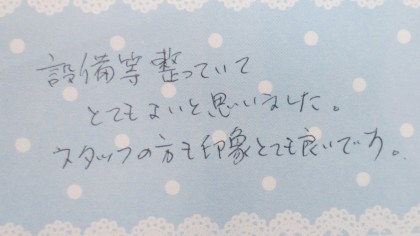 設備等整っていて
とてもよいと思いました。
スタッフの方も印象とても良いです。